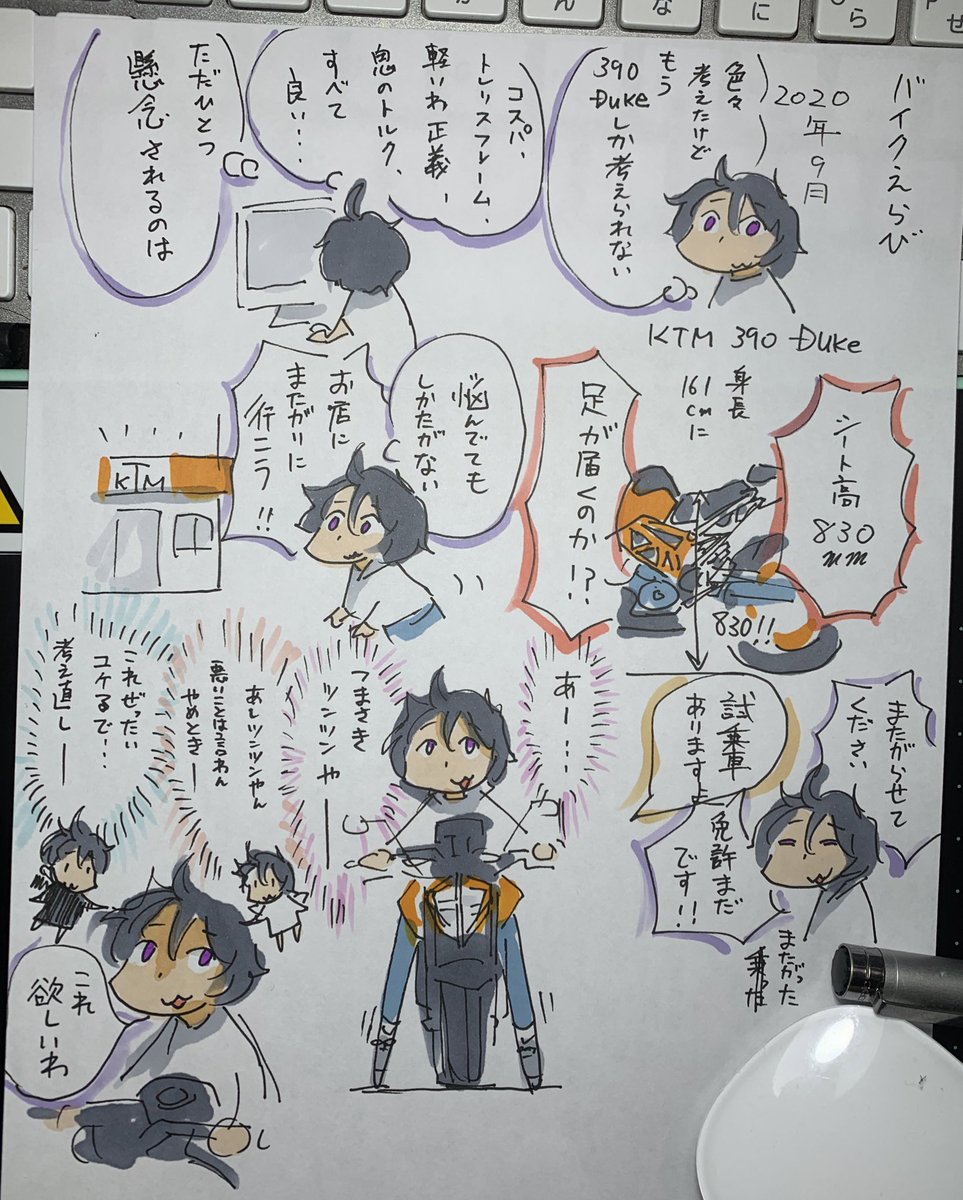 バイクえらび
2020年9月
色々
考えたけど
もう
390
Duke しか考えられない
コスパ、
トレリスフレーム、
軽いわ正義、
鬼のトルク、
すべて
良い・・・
ただひとつ
懸念されるのは
KTM 390 Duke
シート高
830
mm
身長
161
cmに
足が届くのか!?
830!!
悩んでても
しかたがない
お店に
またがりに
行こう!!
KTM
またがらせて
ください
試乗車
ありますよ
免許まだ
です!!
またがった
あー・・・
つまさき
ツンツンやー
あしツンツンやん
悪いことは言わん
やめときー
これぜったい
コケるで・・・
考え直しー
これ
欲しいわ